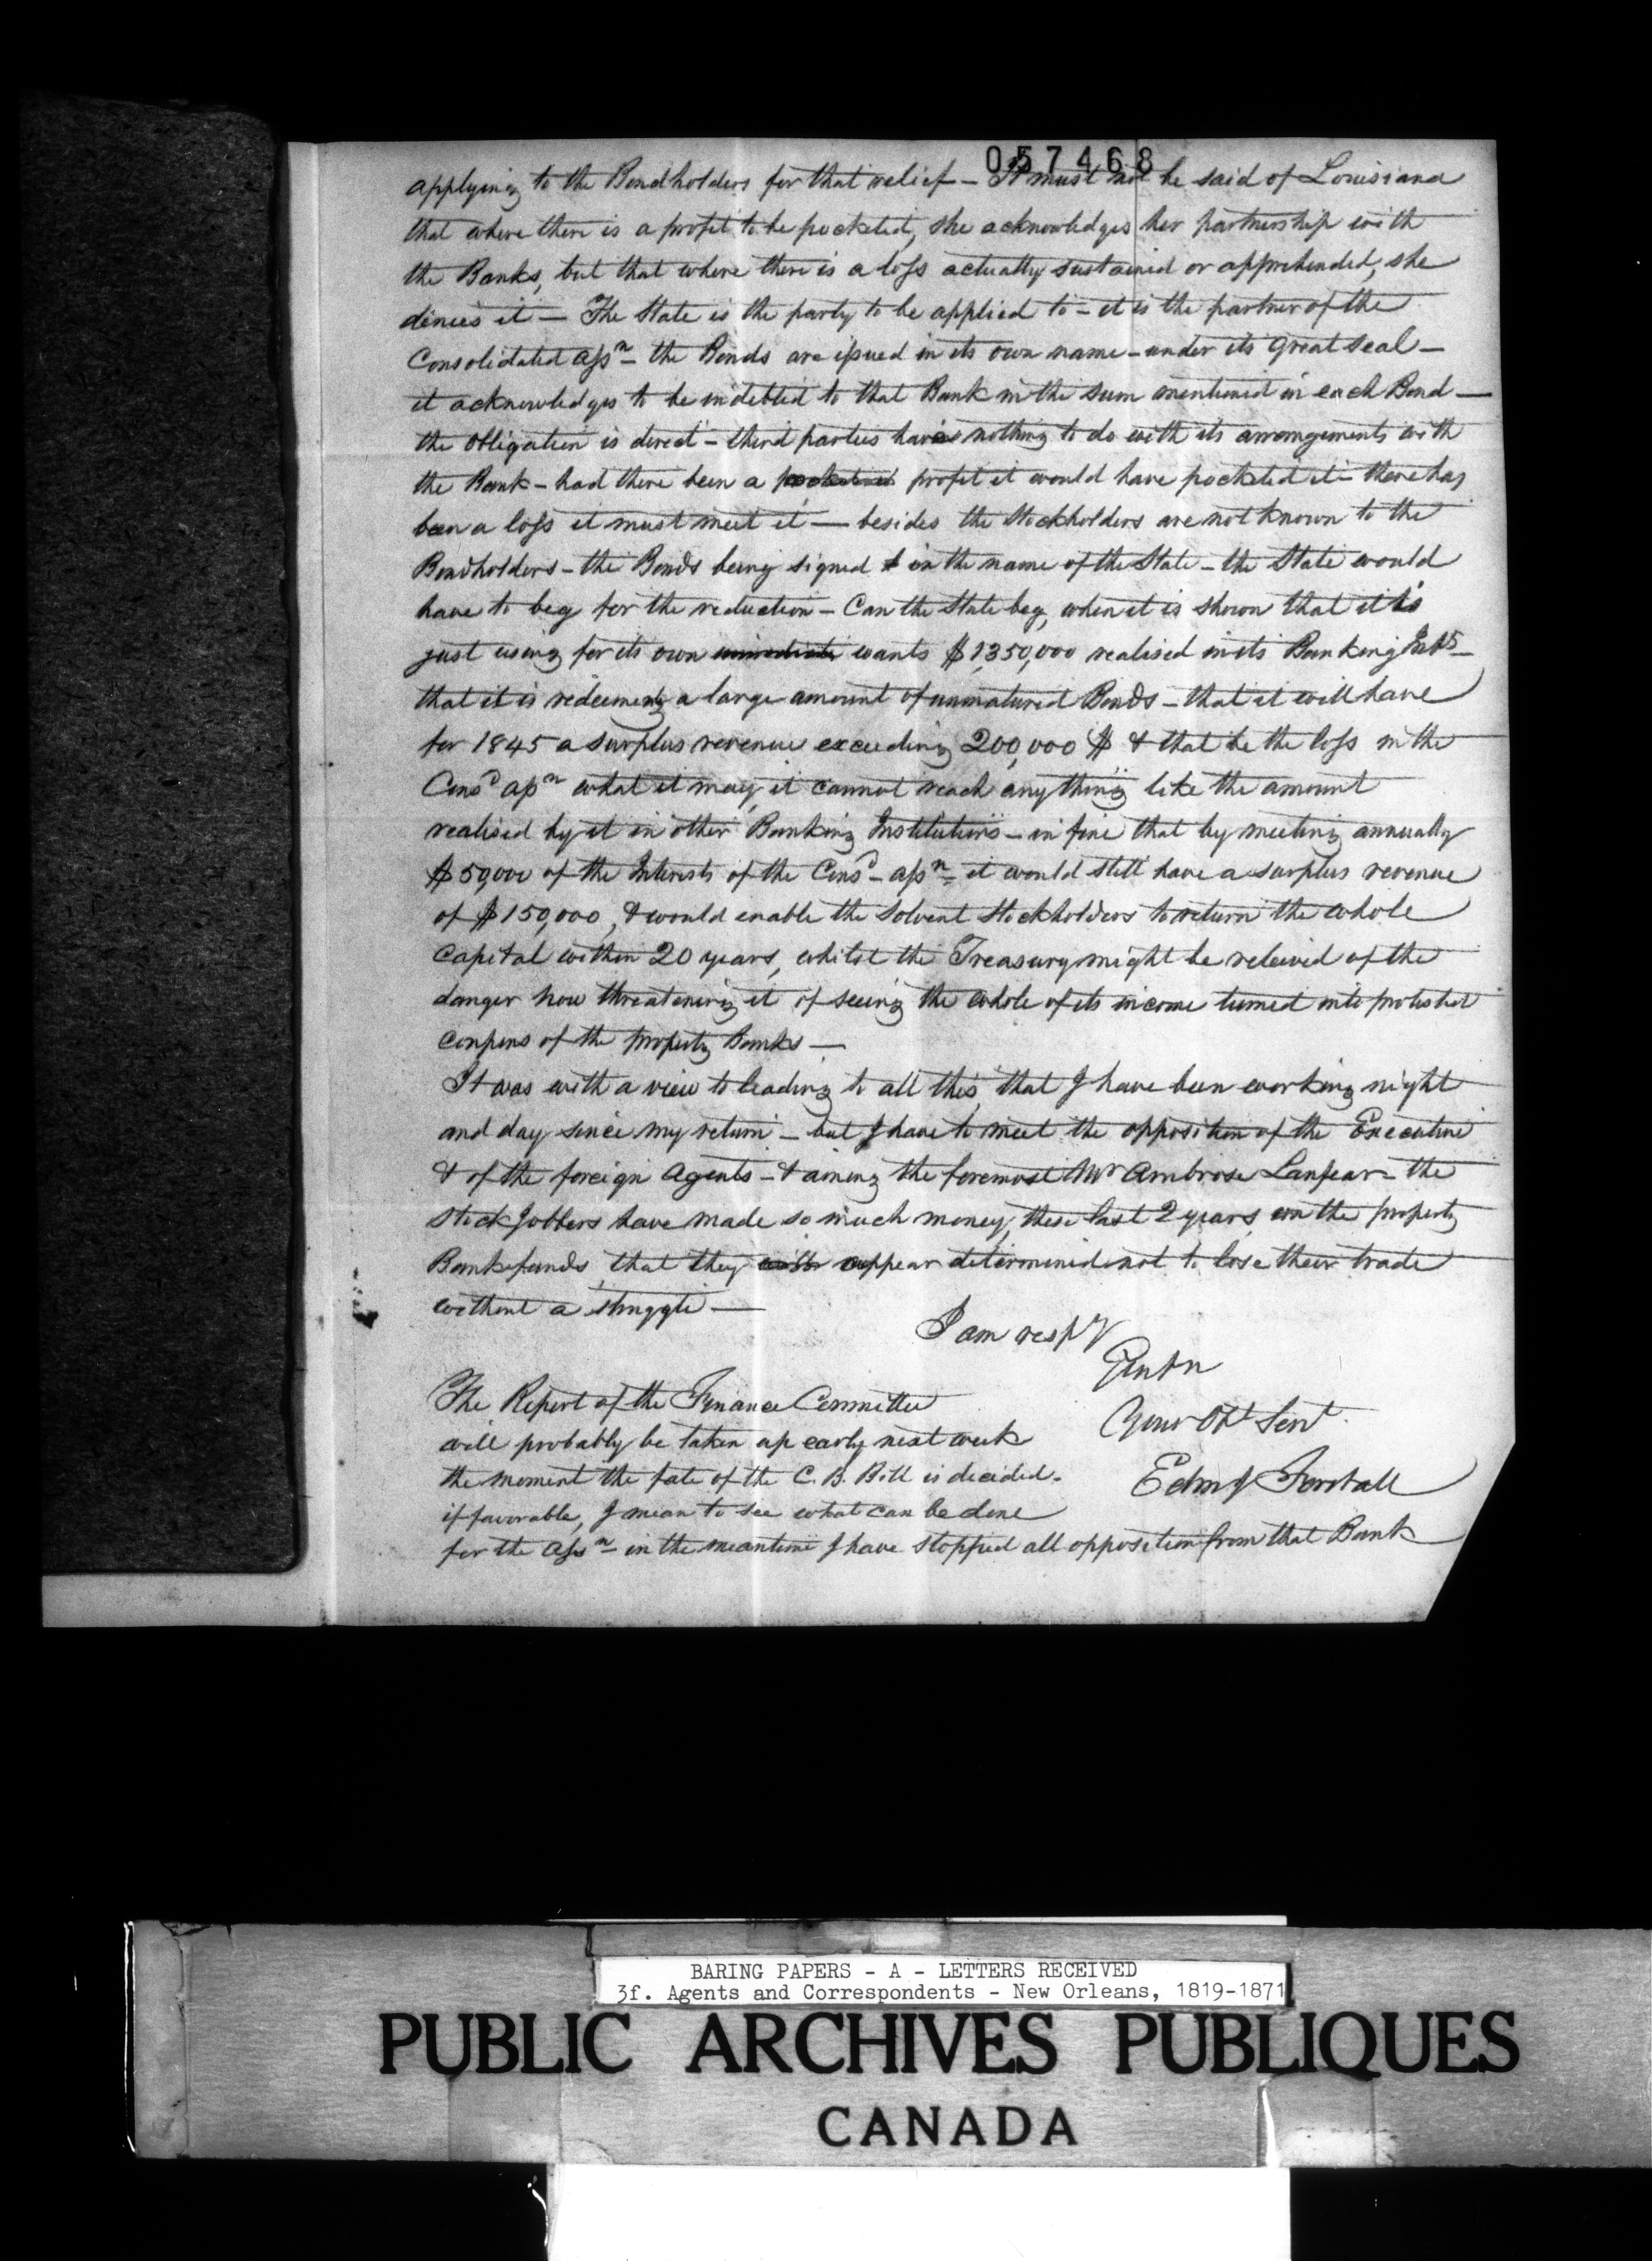 057468
applying to the Bondholders for that relief – It must not be said of Louisiana
that where there is a profit to be pocketed, she acknowledges her partnership with
the Banks, but that where there is a loss actually sustained or apprehended, she
denies it — The State is the party to be applied to – it is the partner of the
Consolidated Assn – the Bonds are issued in its own name – under its Great Seal –
it acknowledges to be indebted to that Bank in the sum mentioned in each Bond —
the obligation is direct – third parties have nothing to do with its arrangements with
the Bank – had there been a profit it would have pocketed it – there has
been a loss it must meet it — besides the Stockholders are not known to the
Bondholders – the Bonds being signed in the name of the State – the State would
have to beg for the reduction – Can the State beg, when it is shown that it is
just using for its own wants $1350,000 realised in its Banking Ints –
that it is redeeming a large amount of unmatured Bonds – that it will have
for 1845 a surplus revenue exceeding 200,000 $ & that be the loss in the
Consd assn what it may, it cannot reach anything like the amount
realised by it in other Banking Institutions – in fine that by meeting annually
$50,000 of the Interests of the Consd – assn – it would still have a surplus revenue
of $150,000, & would enable the Solvent Stockholders to return the whole
Capital within 20 years, whilst the Treasury might be releived of the
danger now threatening it of seeing the whole of its income turned into protested
coupons of the property Banks —
It was with a view to leading to all this, that I have been working night
and day since my return – but I have to meet the opposition of the Executive
& of the foreign Agents – & among the foremost Mr Ambrose Lanfear – the
Stock Jobbers have made so much money, these last 2 years, on the property
Bank funds, that they appear determined not to lose their trade
without a struggle —
I am respy
Gentn
Your Obt Servt
Edm J Forstall
The Report of the Finance Committee
will probably be taken up early next week
the moment the fate of the C. B. Bill is decided.
if favorable, I mean to see what can be done
for the Assn – in the meantime I have stopped all opposition from that Bank
BARING PAPERS - A - LETTERS RECEIVED
3f. Agents and Correspondents - New Orleans, 1819-1871
PUBLIC ARCHIVES PUBLIQUES
CANADA